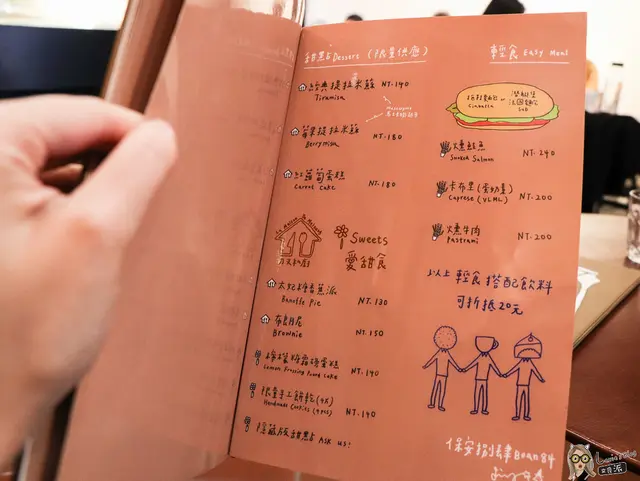 甜點 Dessert (限量供應)
經典提拉米蘇 NT.140
Tiramisu
莓果提拉米蘇 NT.180
Berrymisu
紅蘿蔔蛋糕 NT.180
Carrot Cake
Sweets
愛甜食
太妃糖香蕉派 NT.130
Banoffe Pie
布朗尼 NT.150
Brownie
檸檬糖霜磅蛋糕 NT.140
Lemon Frosting Pound Cake
限量手工餅乾(4入) NT.140
Handmade Cookies (4pcs)
隱藏版甜點 Ask us!
輕食 Easy Meal
拖鞋麵包
Ciabatta
or
潛艇堡
法國麵包
Sub
燻鮭魚 NT.240
Smoked Salmon
卡布里(蛋奶素) NT.200
Caprese (VLML)
燻牛肉 NT.200
Pastrami
以上輕食搭配飲料
可折抵20元
保安捌肆 Boan84